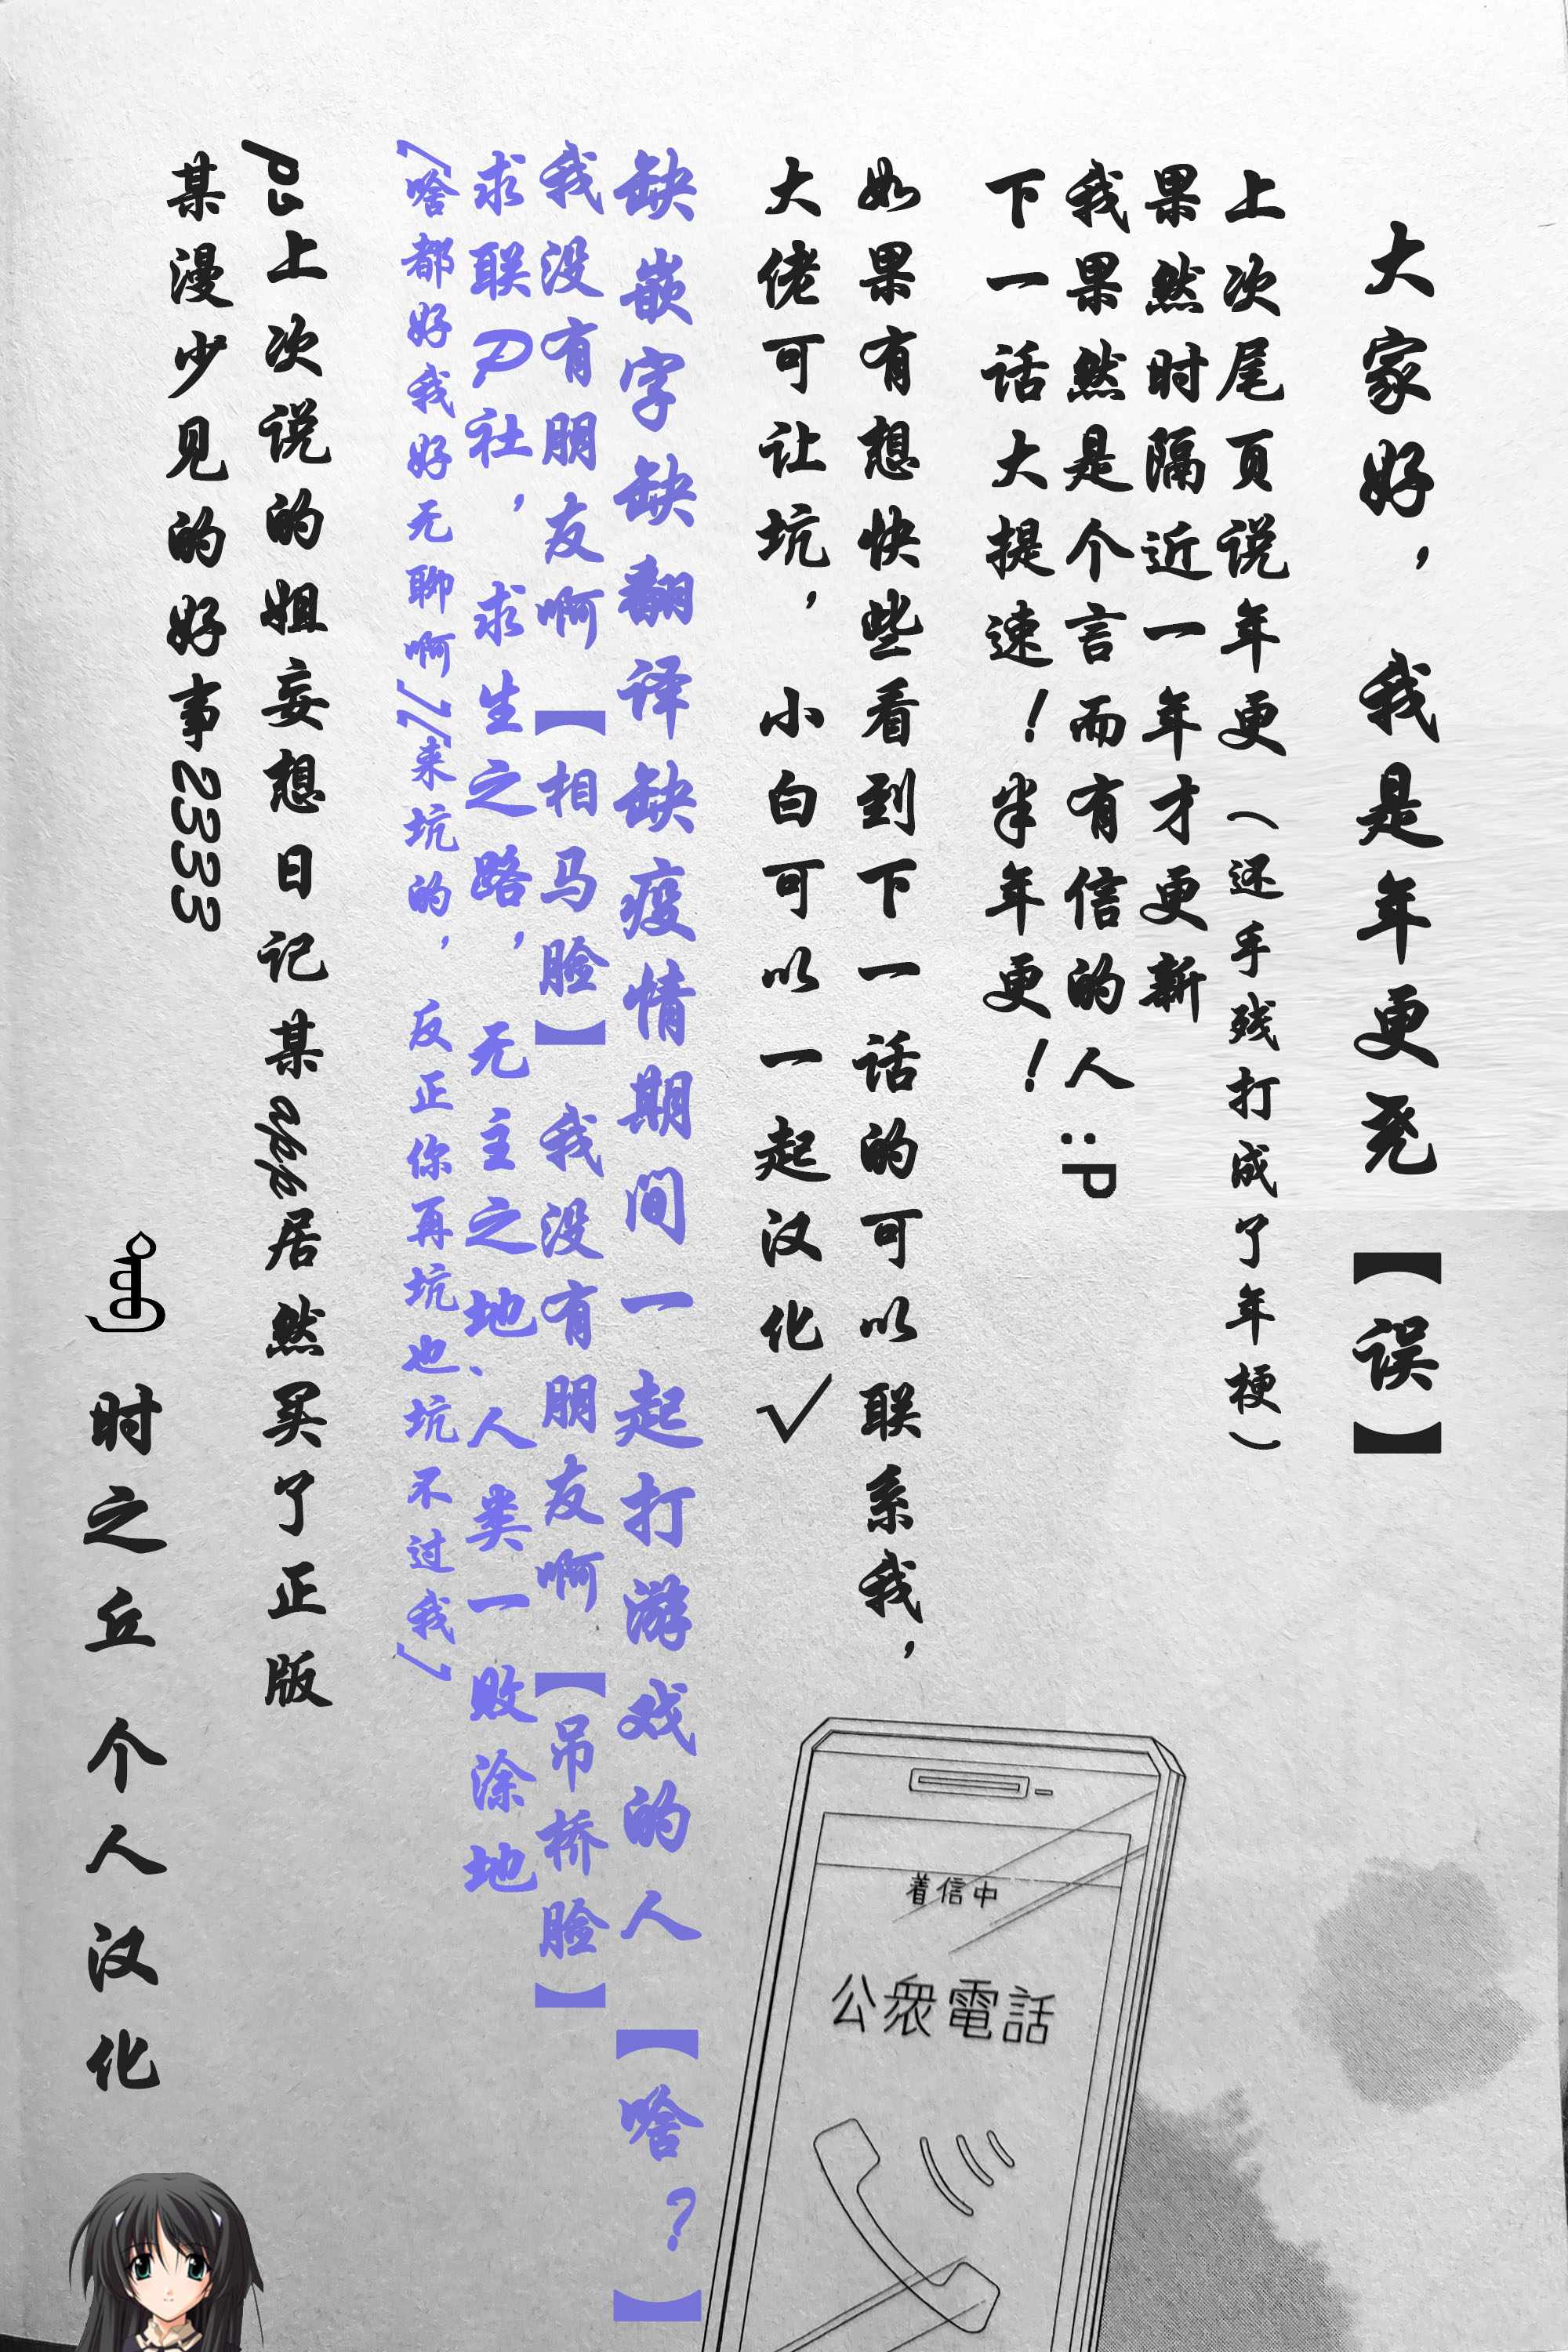 大家好，我是年更尧【误】
上次尾页说年更（还手残打成了年梗）
果然时隔近一年才更新
我果然是个言而有信的人:P
下一话大提速！半年更！
如果有想快些看到下一话的可以联系我，
大佬可让坑，小白可以一起汉化√
缺嵌字缺翻译缺疫情期间一起打游戏的人【啥？】
我没有朋友啊【相马脸】我没有朋友啊【吊桥脸】
求联P社，求生之路，无主之地、人类一败涂地
(啥都好我好无聊啊)(来坑的，反正你再坑也坑不过我)
ps上次说的姐妄想日记某app居然买了正版
某漫少见的好事2333
时之丘 个人汉化
着信中
公衆電話